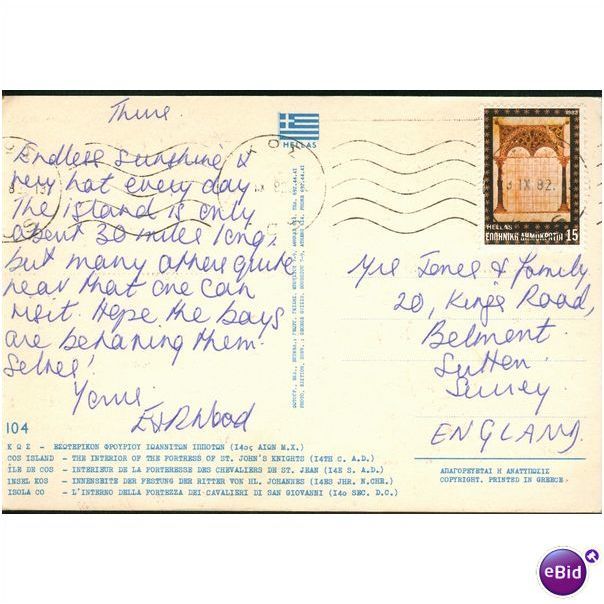 Thurs.
HELLAS
Endless sunshine &
very hot every day.
The island is only
about 30 miles long,
but many others quite
near that one can
visit. Hope the boys
are behaving them-
selves!
Yours
104
1982
IX 82
HELLAS
ΕΛΛΗΝΙΚΗ ΔΗΜΟΚΡΑΤΙΑ 15
Mrs Jones & Family
20, Kings Road,
Belmont
Sutton
Surrey
ENGLAND.
ΚΩΣ – ΕΣΩΤΕΡΙΚΟΝ ΦΡΟΥΡΙΟΥ ΙΩΑΝΝΙΤΩΝ ΙΠΠΟΤΩΝ (14ος ΑΙΩΝ Μ.Χ.)
COS ISLAND – THE INTERIOR OF THE FORTRESS OF ST. JOHN'S KNIGHTS (14TH C. A.D.)
ÎLE DE COS – INTERIEUR DE LA FORTERESSE DES CHEVALIERS DE ST. JEAN (14E S. A.D.)
INSEL KOS – INNENSEITE DER FESTUNG DER RITTER VON HL. JOHANNES (14ES JHR. N.CHR.)
ISOLA CO – L'INTERNO DELLA FORTEZZA DEI CAVALIERI DI SAN GIOVANNI (14o SEC. D.C.)
ΑΠΑΓΟΡΕΥΕΤΑΙ Η ΑΝΑΤΥΠΩΣΙΣ
COPYRIGHT. PRINTED IN GREECE
eBid